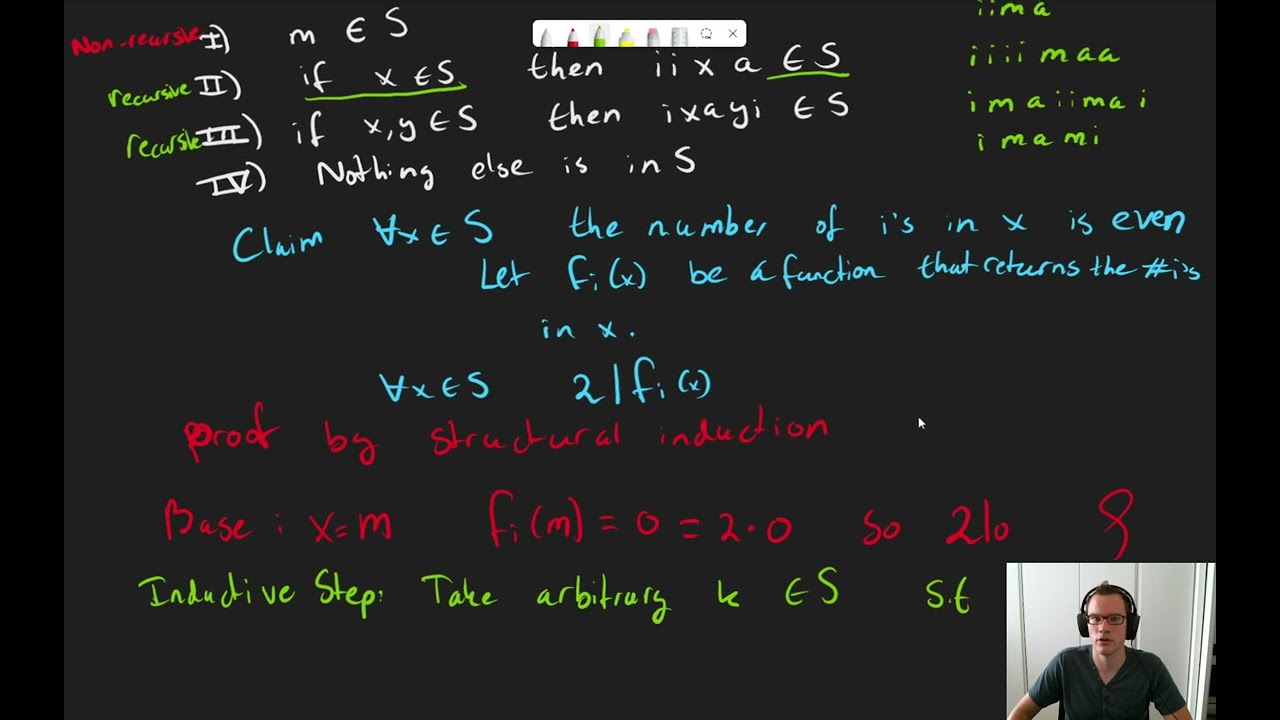 iima
Non-recursive I) m ∈ S
recursive II) if x ∈ S then iixa ∈ S
iiiimaa
recursive III) if x,y ∈ S then ixayi ∈ S
imaiimai
imami
IV) Nothing else is in S
Claim ∀x ∈ S the number of i's in x is even
Let fi(x) be a function that returns the #i's
in x.
∀x ∈ S 2|fi(x)
proof by structural induction
Base: x=m fi(m) = 0 = 2·0 so 2|0
Inductive Step: Take arbitrary k ∈ S s.t